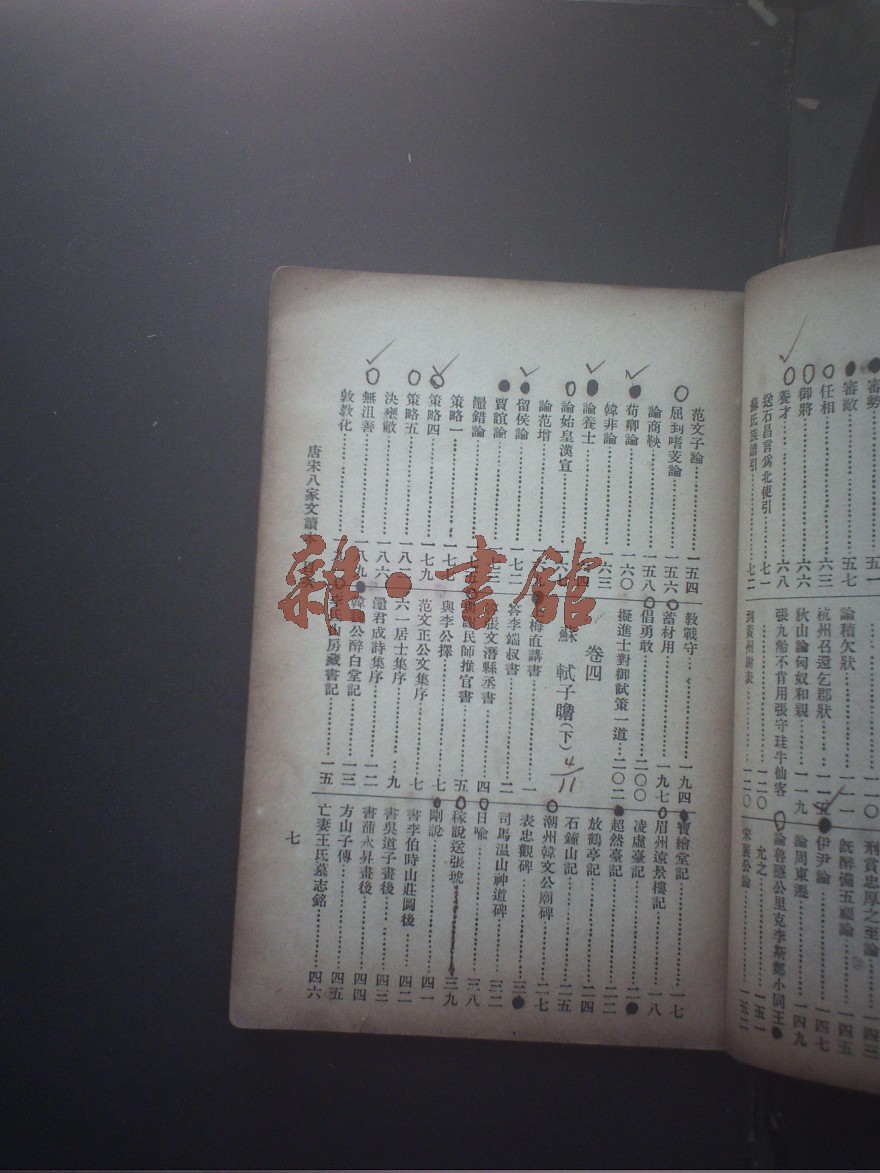 審勢……五一
審敵……五七
任相……六三
御將……六六
養才……六八
送石昌言爲北使引……七一
蘇氏族譜引……七二
論積欠狀
杭州召還乞郡狀
狄山論匈奴和親……一一九
張九齡不肯用張守珪牛仙客……一二〇
到黃州謝表……一二〇
刑賞忠厚之至論……一四三
既醉備五福論……一四五
伊尹論……一四七
論周東遷……一四九
論魯隱公里克李斯鄭小同王允之……一五一
宋襄公論……一五二
范文子論……一五四
屈到嗜芰論……一五六
論商鞅……一五八
荀卿論……一六〇
韓非論……一六三
論養士
論始皇漢宣
論范增
留侯論……一七二
賈誼論……一七三
鼂錯論……一七五
策略一……一七七
策略四……一七九
策略五……一八二
決壅蔽……一八六
無沮善……一八九
敦教化
教戰守……一九四
蓄材用……一九七
倡勇敢……二〇〇
擬進士對御試策一道……二〇二
卷四
蘇軾子瞻(下)
4/11
梅直講書
答李端叔書……二
張文潛縣丞書……四
謝民師推官書……五
與李公擇……七
范文正公文集序……七
六一居士集序……九
鼂君成詩集序……一二
韓魏公醉白堂記……一三
李氏山房藏書記……一五
寶繪堂記……一七
眉州遠景樓記……一八
凌虛臺記……二一
超然臺記……二二
放鶴亭記……二四
石鐘山記……二五
潮州韓文公廟碑……二七
表忠觀碑……三〇
司馬温公神道碑……三二
日喻……三八
稼說送張琥……三九
剛說……四一
書李伯時山莊圖後……四二
書吳道子畫後……四三
書蒲永昇畫後……四四
方山子傳……四五
亡妻王氏墓志銘……四六
唐宋八家文讀本
七
雜·書館